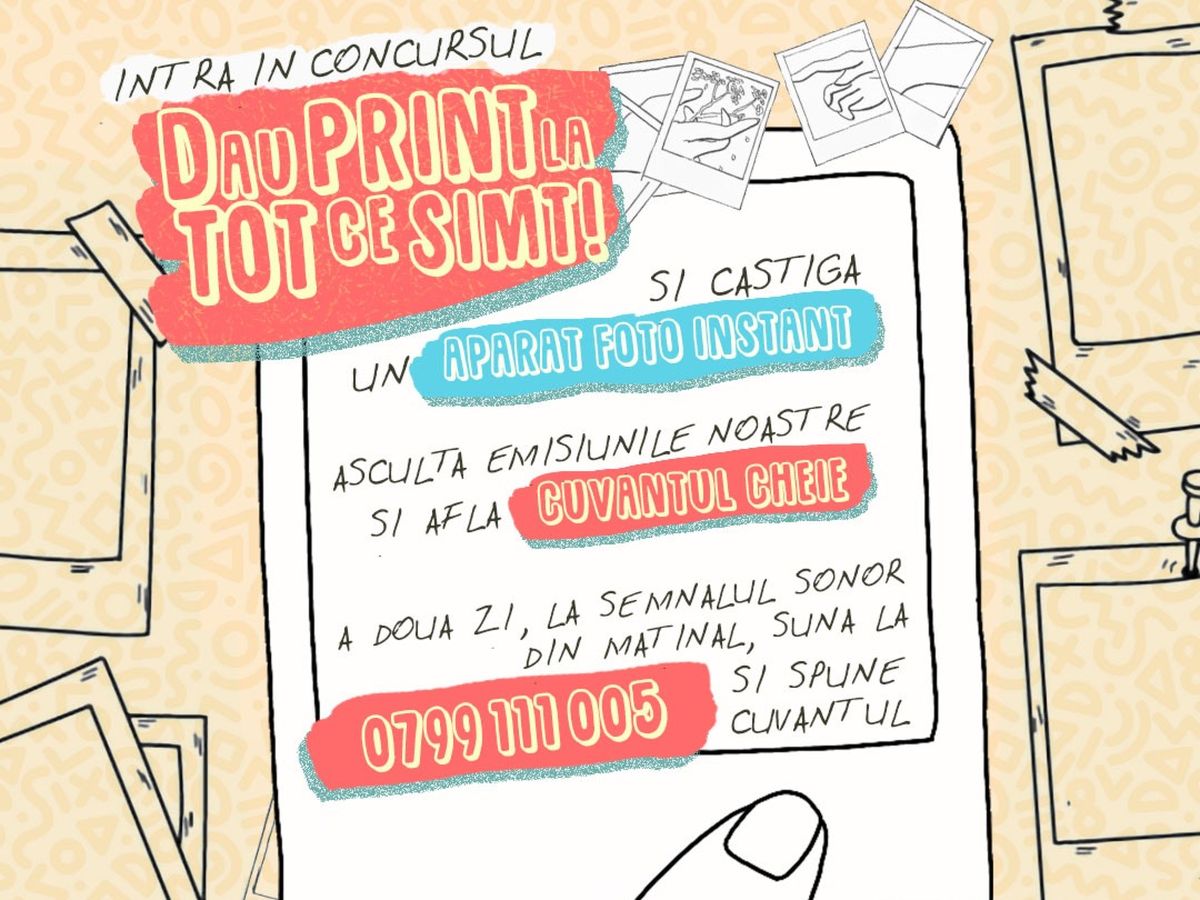 INTRA IN CONCURSUL
DAU PRINT LA
TOT CE SIMT!
SI CASTIGA
UN APARAT FOTO INSTANT
ASCULTA EMISIUNILE NOASTRE
SI AFLA CUVANTUL CHEIE
A DOUA ZI, LA SEMNALUL SONOR
DIN MATINAL, SUNA LA
0799 111 005 SI SPUNE
CUVANTUL